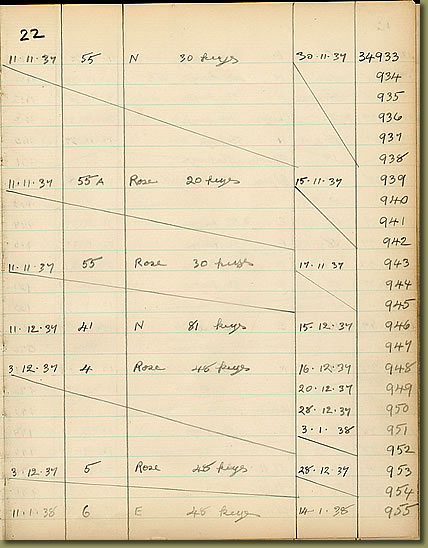 22
11·11·37 55 N 30 keys 30·11·37 34933
934
935
936
937
938
11·11·37 55A Rose 20 keys 15·11·37 939
940
941
942
11·11·37 55 Rose 30 keys 17·11·37 943
944
945
11·12·37 41 N 81 keys 15·12·37 946
947
3·12·37 4 Rose 48 keys 16·12·37 948
20·12·37 949
28·12·37 950
3·1·38 951
952
3·12·37 5 Rose 48 keys 28·12·37 953
954
11·1·38 6 E 48 keys 14·1·38 955